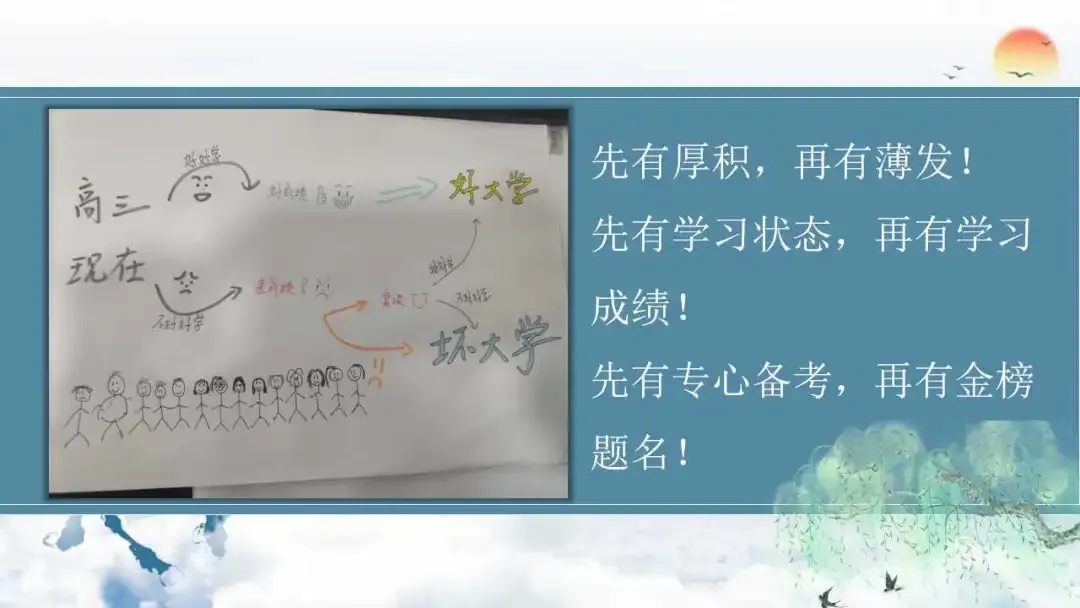 好好学
高三
好成绩
好大学
现在
好好学
不好好学
不好好学
坏大学
先有厚积，再有薄发！
先有学习状态，再有学习
成绩！
先有专心备考，再有金榜
题名！